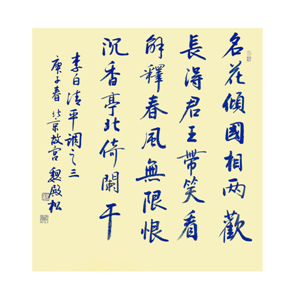 名花傾國相两歡
長得君王帶笑看
解釋春風無限恨
沉香亭北倚闌干
李白清平調之三
庚子春北京故宮魏殿松